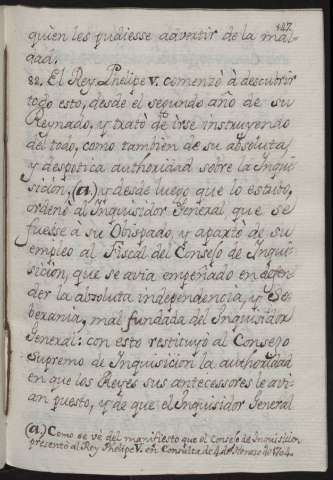 127.
quien les pudiesse advertir de la mal-
dad.
82. El Rey Phelipe V. comenzò à descubrir
todo esto, desde el segundo año de su
Reynado, y tratò de irse instruyendo
del todo, como tambien de su absoluta,
y despotica authoridad sobre la Inqui-
sicion, (a.) y desde luego que lo estubo,
ordenò al Inquisidor General que se
fuesse a su Obispado, y apartò de su
empleo al Fiscal del Consejo de Inqui-
sicion, que se avia empeñado en defen-
der la absoluta independencia, y So-
berania, mal fundada del Inquisidor
General: con esto restituyò al Consejo
Supremo de Inquisicion la authoridad
en que los Reyes sus antecessores le avi-
an puesto, y que el Inquisidor General
(a.) Como se vè del manifiesto que el Consejo de Inquisicion
presentò al Rey Phelipe V. en Consulta de 4 de Henero de 1704.